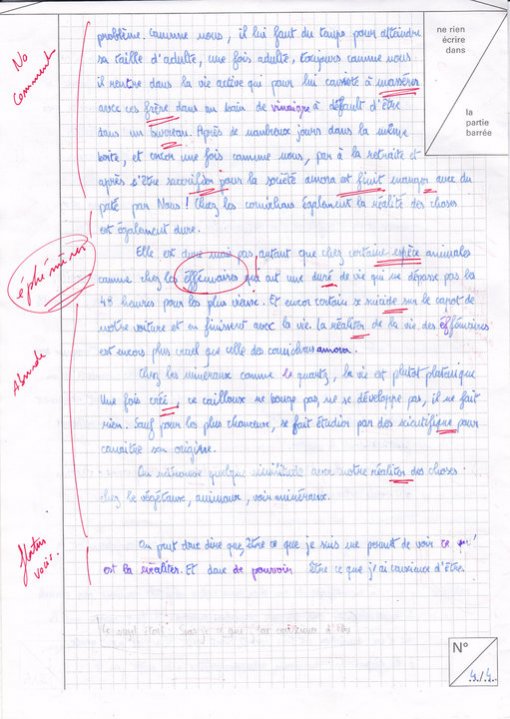 problème. Comme nous, il lui faut du temps pour atteindre
sa taille d'adulte, une fois adulte, toujours comme nous
il rentre dans la vie active qui pour lui consiste à
avec ces frère dans un bain de vinaigre à défault d'être
dans un bureau. Après de nombreux jours dans la même
boite, et encor une fois comme nous, par à la retraite et
après s'être sacrifier pour la société amora est finit manger avec du
paté par Nous ! Chez les cornichons également la réalité des choses
est également dure.
Elle est dure mais pas autant que chez certaine espèce animales
comme chez les éffémaires qui ont une duré de vie qui ne dépasse pas la
48 heures pour les plus vieux. Et encor certain se suicide sur le capot de
notre voiture et en finissent avec la vie. La réaliter de la vie des éffémaires
est encore plus cruel que celle des cornichons amora.
Chez les minéraux comme le quartz, la vie est plutot platonique
Une fois créé, ce cailloux ne bouge pas, ne se développe pas, il ne fait
rien. Sauf pour les plus chanceux, se fait étudier par des scientifique pour
connaitre son origine.
On retrouve quelque similitude avec notre réaliter des choses
chez le végétaux, animaux, voir minéraux.
On peut donc dire que, être ce que je suis me permet de voir ce qui
est la réaliter. Et donc de pouvoir être ce que j'ai conscience d'être.
No
comment
éphémères
Absurde
ne rien
écrire
dans
la
partie
barrée
N°
4/4